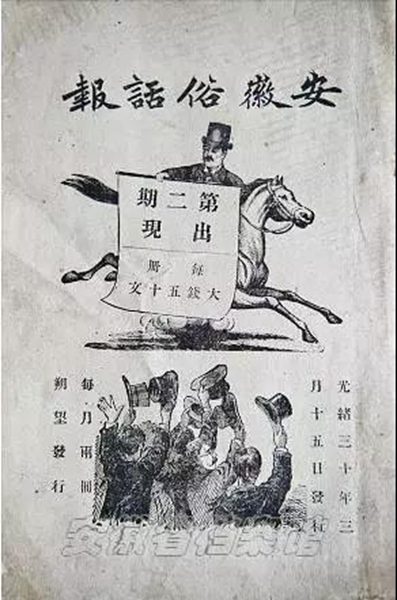 安徽俗話報
第二期
出現
每冊
大錢五十文
光緒三十年三
月十五日發行
每月兩冊
朔望發行
安徽省档案馆